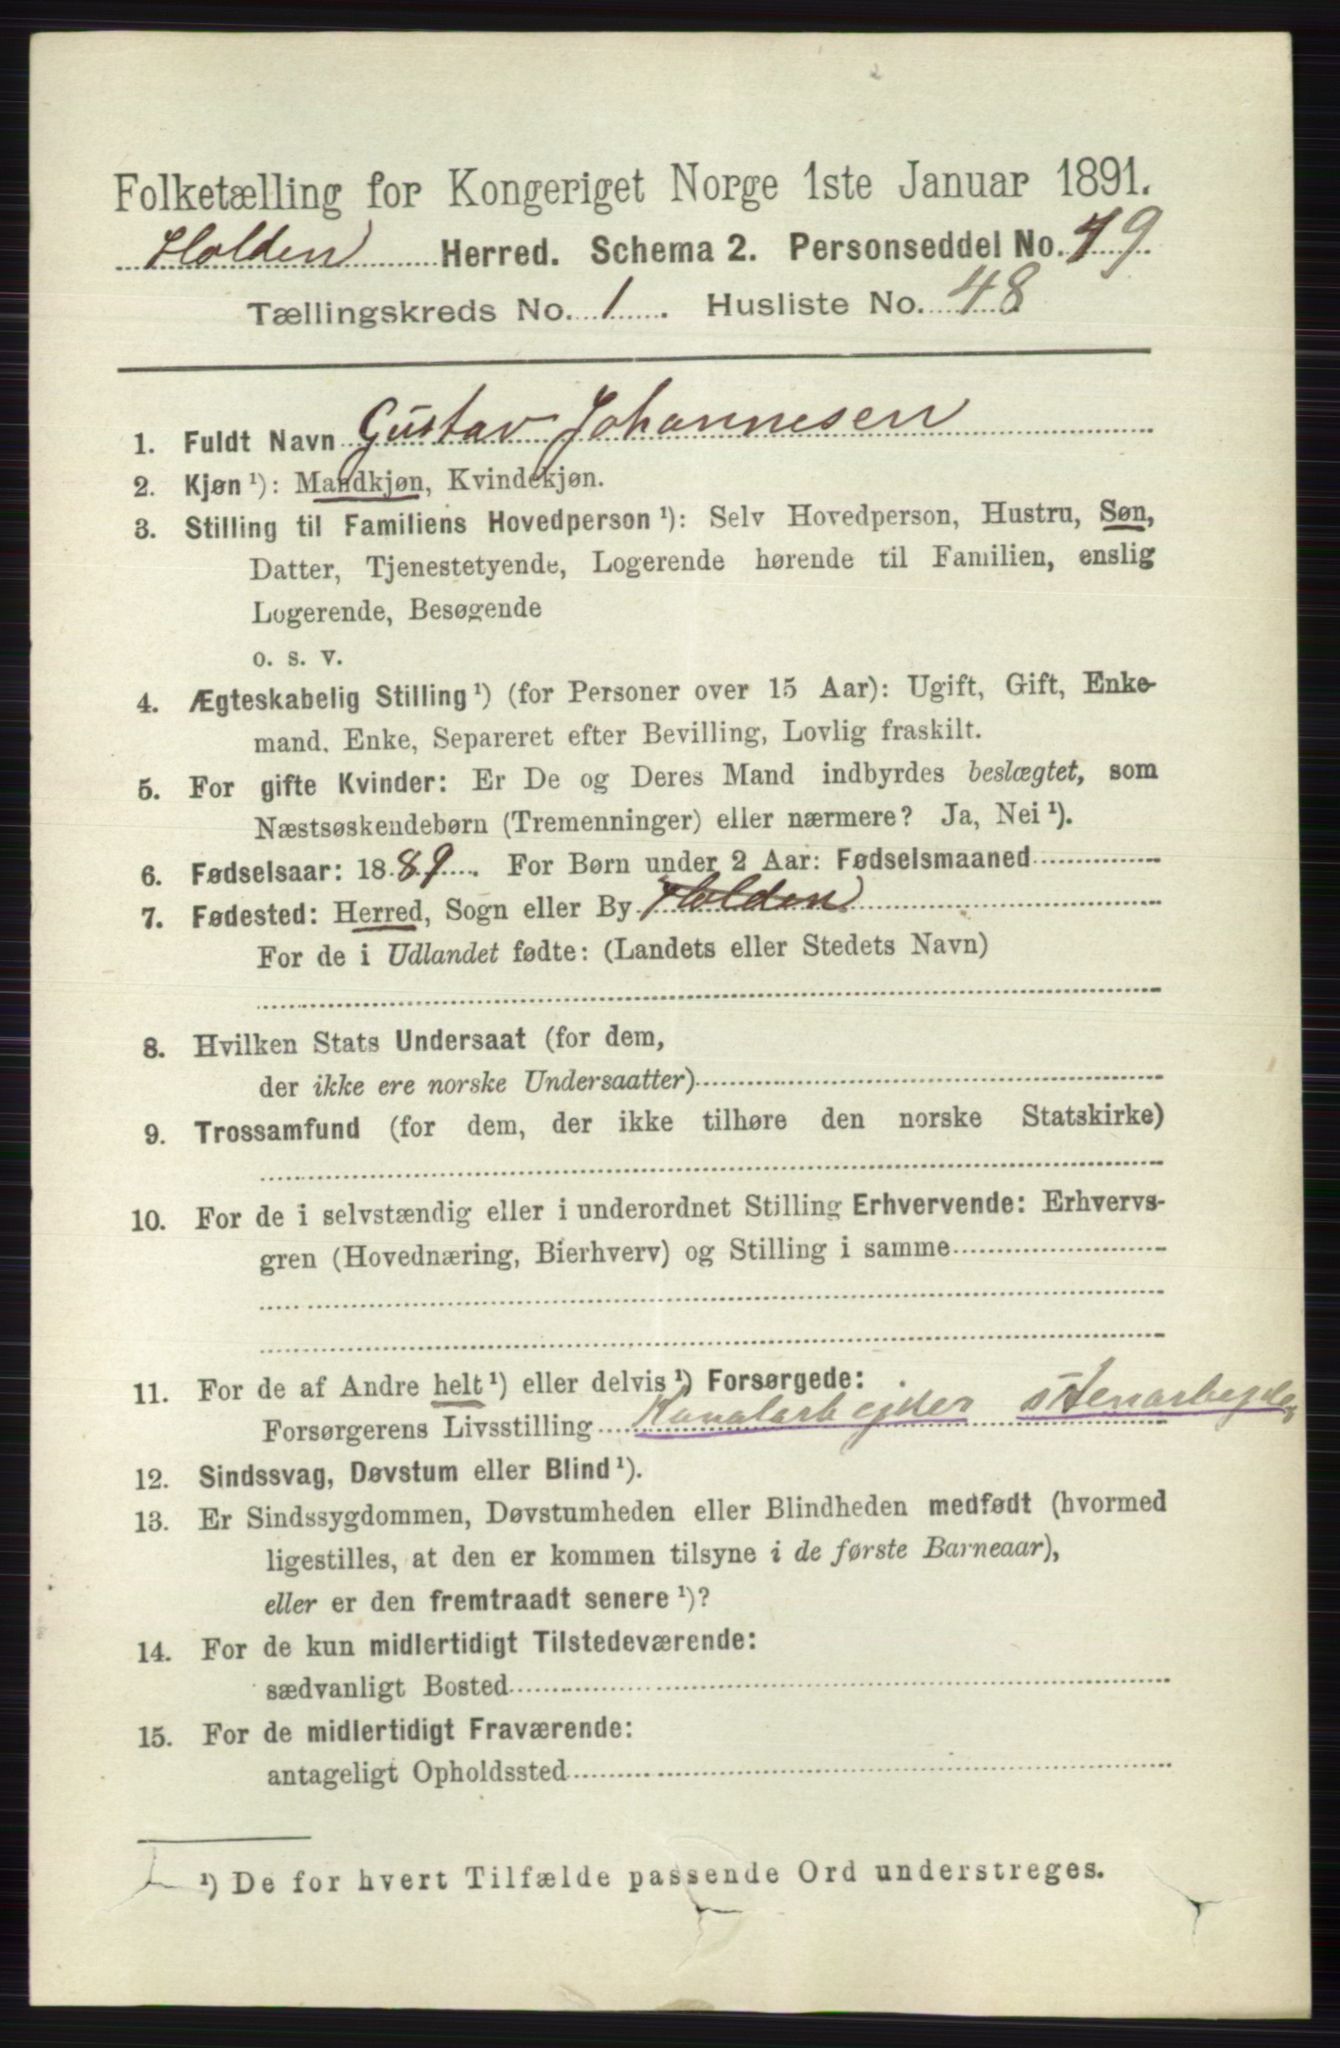 Folketælling for Kongeriget Norge 1ste Januar 1891.
Holden Herred. Schema 2. Personseddel No. 19
Tællingskreds No. 1. Husliste No. 48
1. Fuldt Navn Gustav Johannesen
2. Kjøn ¹): Mandkjøn, Kvindekjøn.
3. Stilling til Familiens Hovedperson ¹): Selv Hovedperson, Hustru, Søn,
Datter, Tjenestetyende, Logerende hørende til Familien, enslig
Logerende, Besøgende
o. s. v.
4. Ægteskabelig Stilling ¹) (for Personer over 15 Aar): Ugift, Gift, Enke-
mand, Enke, Separeret efter Bevilling, Lovlig fraskilt.
5. For gifte Kvinder: Er De og Deres Mand indbyrdes beslægtet, som
Næstsøskendebørn (Tremenninger) eller nærmere? Ja, Nei ¹).
6. Fødselsaar: 1889. For Børn under 2 Aar: Fødselsmaaned
7. Fødested: Herred, Sogn eller By Holden
For de i Udlandet fødte: (Landets eller Stedets Navn)
8. Hvilken Stats Undersaat (for dem,
der ikke ere norske Undersaatter)
9. Trossamfund (for dem, der ikke tilhøre den norske Statskirke)
10. For de i selvstændig eller i underordnet Stilling Erhvervende: Erhvervs-
gren (Hovednæring, Bierhverv) og Stilling i samme
11. For de af Andre helt ¹) eller delvis ¹) Forsørgede:
Forsørgerens Livsstilling Kanalarbejder stenarbejder
12. Sindssvag, Døvstum eller Blind ¹).
13. Er Sindssygdommen, Døvstumheden eller Blindheden medfødt (hvormed
ligestilles, at den er kommen tilsyne i de første Barneaar),
eller er den fremtraadt senere ¹)?
14. For de kun midlertidigt Tilstedeværende:
sædvanligt Bosted
15. For de midlertidigt Fraværende:
antageligt Opholdssted
¹) De for hvert Tilfælde passende Ord understreges.